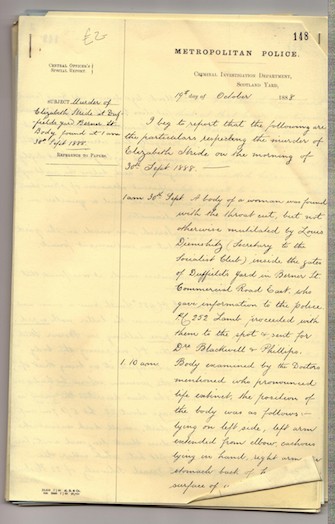 £2
148
METROPOLITAN POLICE.
CENTRAL OFFICER'S
SPECIAL REPORT.
CRIMINAL INVESTIGATION DEPARTMENT,
SCOTLAND YARD,
19th day of October 1888.
SUBJECT Murder of
Elizabeth Stride at Duf-
fields yard Berner St
Body found at 1 am
30th Sept 1888.
REFERENCE TO PAPERS.
I beg to report that the following are
the particulars respecting the murder of
Elizabeth Stride on the morning of
30th Sept 1888. —
1 am 30th Sept A body of a woman was found
with the throat cut, but not
otherwise mutilated by Louis
Diemshitz (Secretary to the
Socialist Club) inside the gates
of Duffields Yard in Berner St.
Commercial Road East. who
gave information to the Police
PC 252 Lamb proceeded with
them to the spot & sent for
Drs Blackwell & Phillips.
1. 10 am Body examined by the Doctors
mentioned who pronounced
life extinct, the position of
the body was as follows :—
lying on left side, left arm
extended from elbow, cachous
lying in hand, right arm
stomach back of
surface of